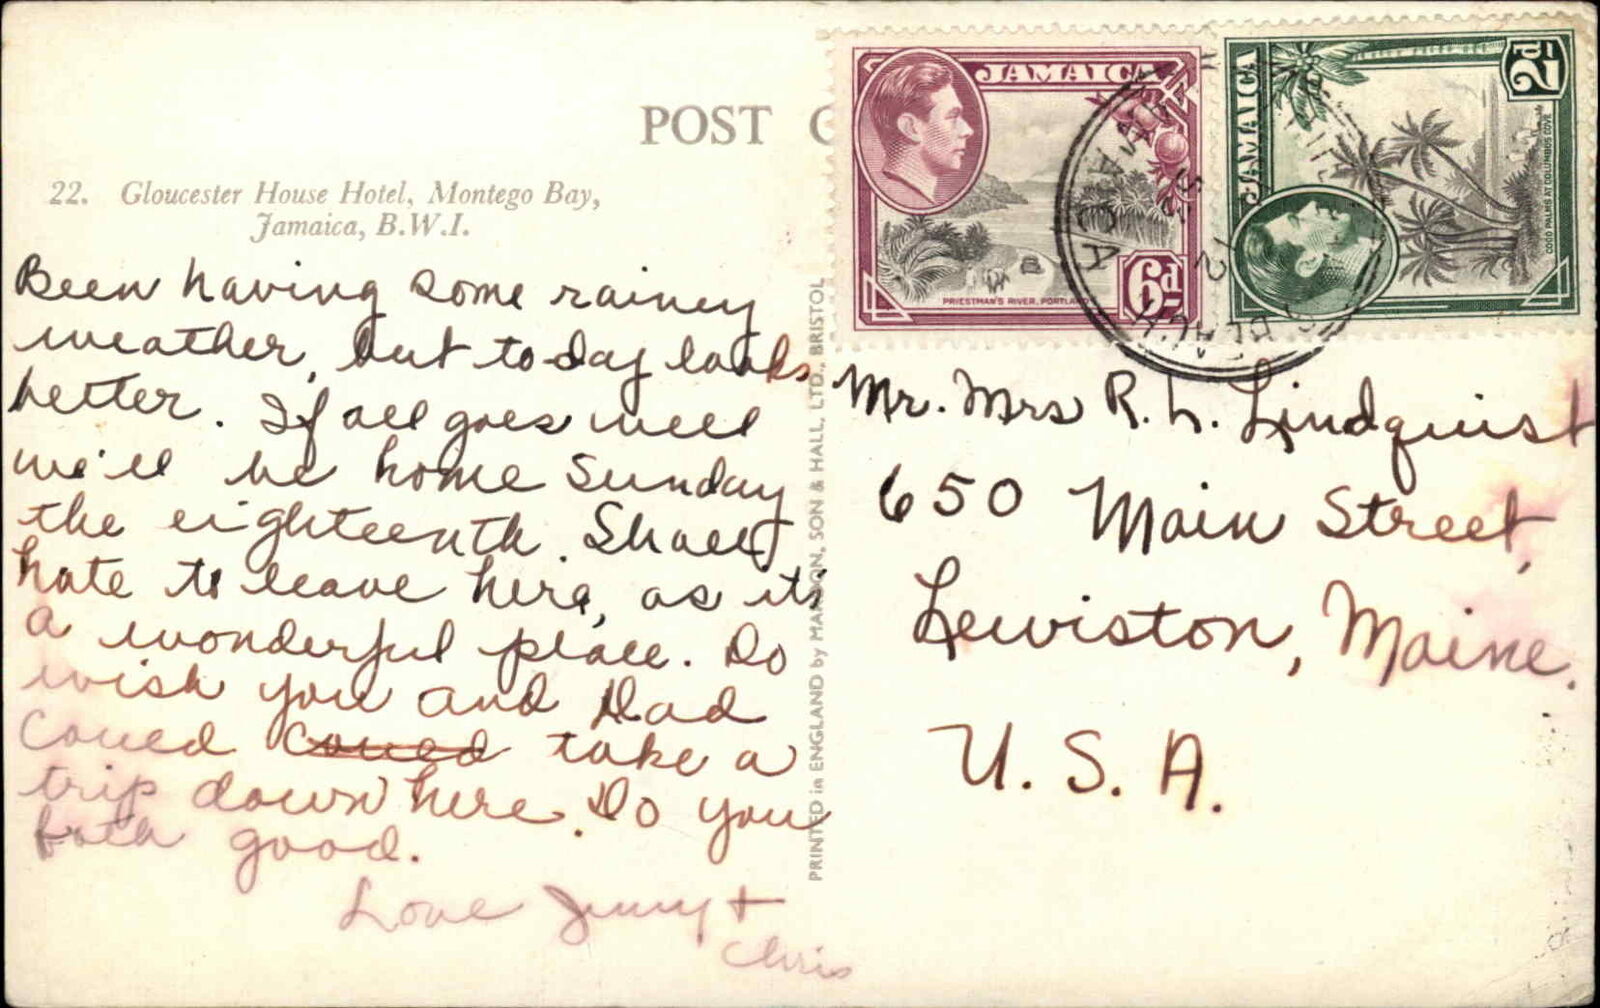 POST C
22. Gloucester House Hotel, Montego Bay,
Jamaica, B.W.I.
Been having some rainey
weather, but to-day looks
better. If all goes well
we'll be home Sunday
the eighteenth. Shall
hate to leave here, as it's
a wonderful place. Do
wish you and Dad
could could take a
trip down here. Do you
both good.
Love Jenny +
Chris
PRINTED in ENGLAND by MARDON, SON & HALL, LTD., BRISTOL
JAMAICA
PRIESTMAN'S RIVER, PORTLAND
6d
JAMAICA
2d
COCO PALMS AT COLUMBUS COVE
JAMAICA
Mr. Mrs R. L. Lindquist
650 Main Street,
Lewiston, Maine.
U. S. A.